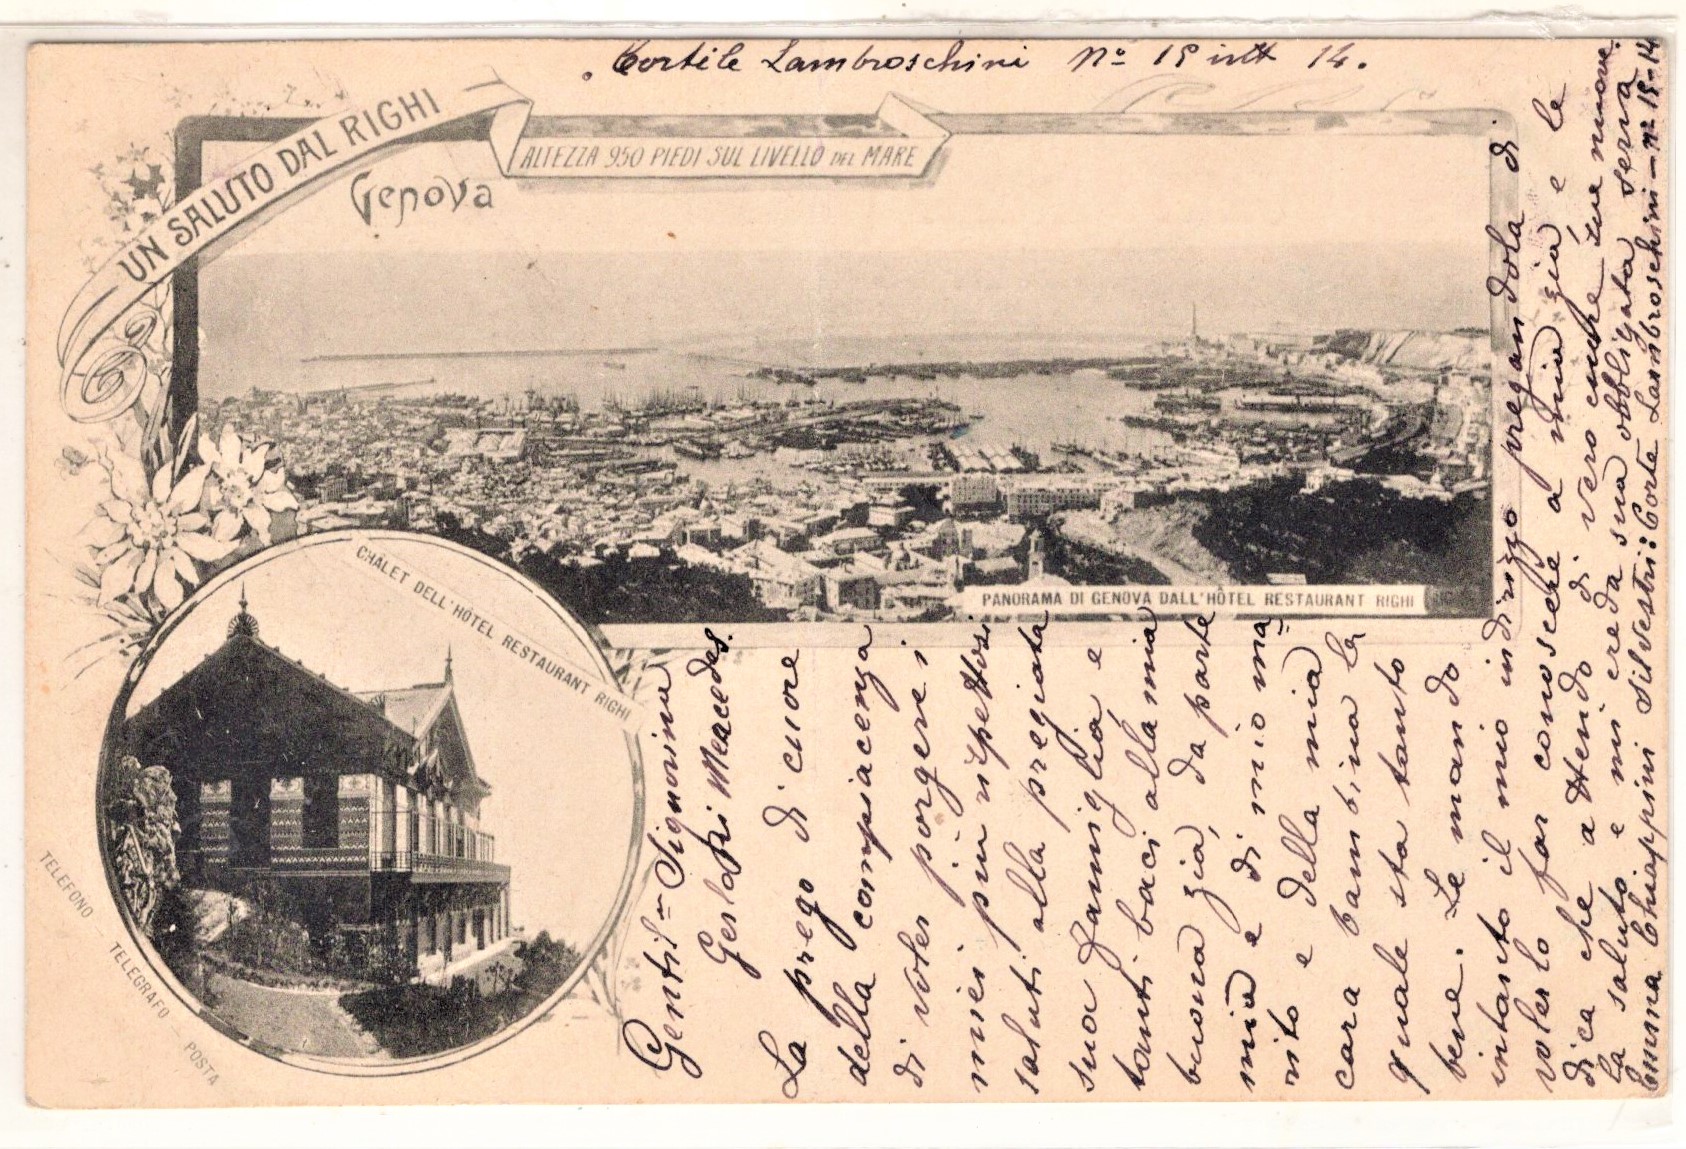 Cortile Lambroschini Nº 15 int 14.
UN SALUTO DAL RIGHI
ALTEZZA 950 PIEDI SUL LIVELLO DEL MARE
Genova
PANORAMA DI GENOVA DALL'HÔTEL RESTAURANT RIGHI
CHALET DELL'HÔTEL RESTAURANT RIGHI
TELEFONO – TELEGRAFO – POSTA
Gentil= Signorina
Mercedes.
La prego di cuore
della compiacenza
di voler porgere i
miei più rispettosi
saluti alla pregiata
sua famiglia e
tanti baci alla mia
buona zia, da parte
mia e di mio ma=
rito e della mia
cara bambina la
quale sta tanto
bene. Le mando
intanto il mio indirizzo pregandola di
volerlo far conoscere a mia zia e le
dica che attendo di vero cuore sue nuove.
La saluto e mi creda sua obbligata serva
Emma Chiappini Silvestri: Corte Lambroschini – nº 15-14